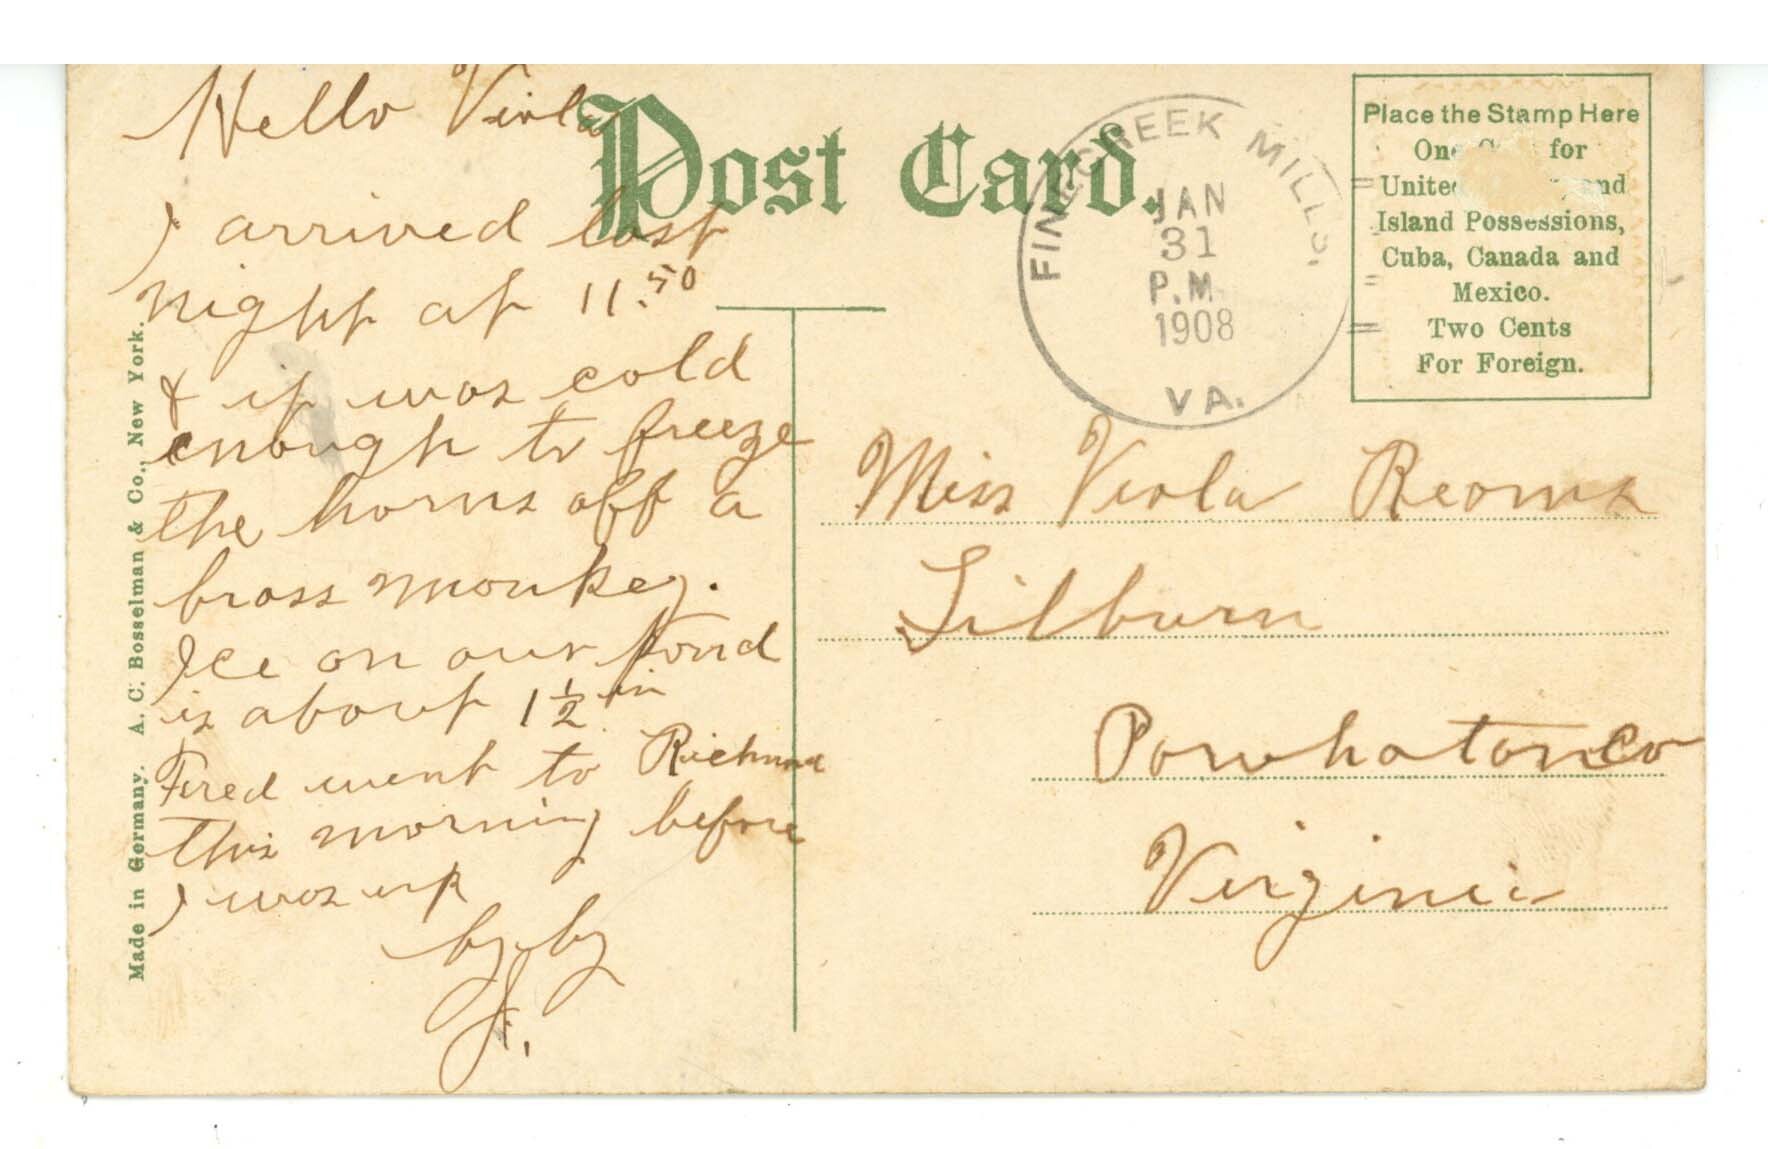 Hello Viola
I arrived last
night at 11.50
& it was cold
enough to freeze
the horns off a
brass monkey.
Ice on our Pond
is about 1 1/2 in
Fred went to Richmond
this morning before
I was up
by by
J.
Post Card.
FINECREEK MILLS.
JAN
31
P.M.
1908
VA.
Place the Stamp Here
One for
United and
Island Possessions,
Cuba, Canada and
Mexico.
Two Cents
For Foreign.
Miss Viola Reams
Tilburn
Powhatan Co
Virginia
Made in Germany. A. C. Bosselman & Co., New York.